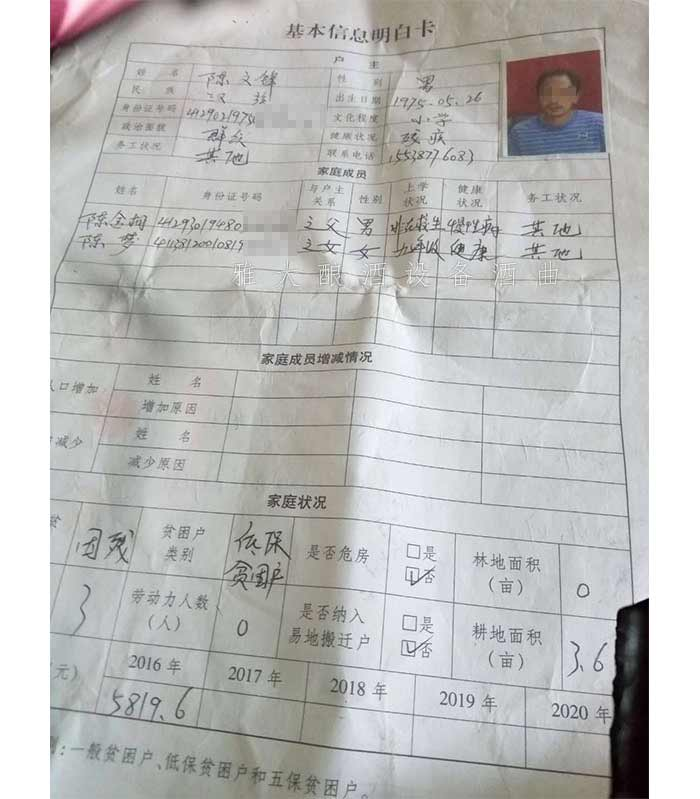 基本信息明白卡
户 主
姓 名 陈文锋 性 别 男
民 族 汉族 出生日期 1975.05.26
身份证号码 412902197505 文化程度 小学
政治面貌 群众 健康状况 残疾
务工状况 其他 联系电话
家庭成员
姓名 身份证号码 与户主关系 性别 上学状况 健康状况 务工状况
陈金 之父 男 非在校生 慢性病 其他
陈梦 之女 女 九年级 健康 其他
雅大酿酒设备酒曲
家庭成员增减情况
人口增加 姓 名
增加原因
减少 姓 名
减少原因
家庭状况
因残 贫困户类别 低保贫困户 是否危房 □是 ☑否 林地面积(亩) 0
3 劳动力人数(人) 0 是否纳入易地搬迁户 □是 ☑否 耕地面积(亩) 3.6
元) 2016年 2017年 2018年 2019年 2020年
5819.6
:一般贫困户、低保贫困户和五保贫困户。